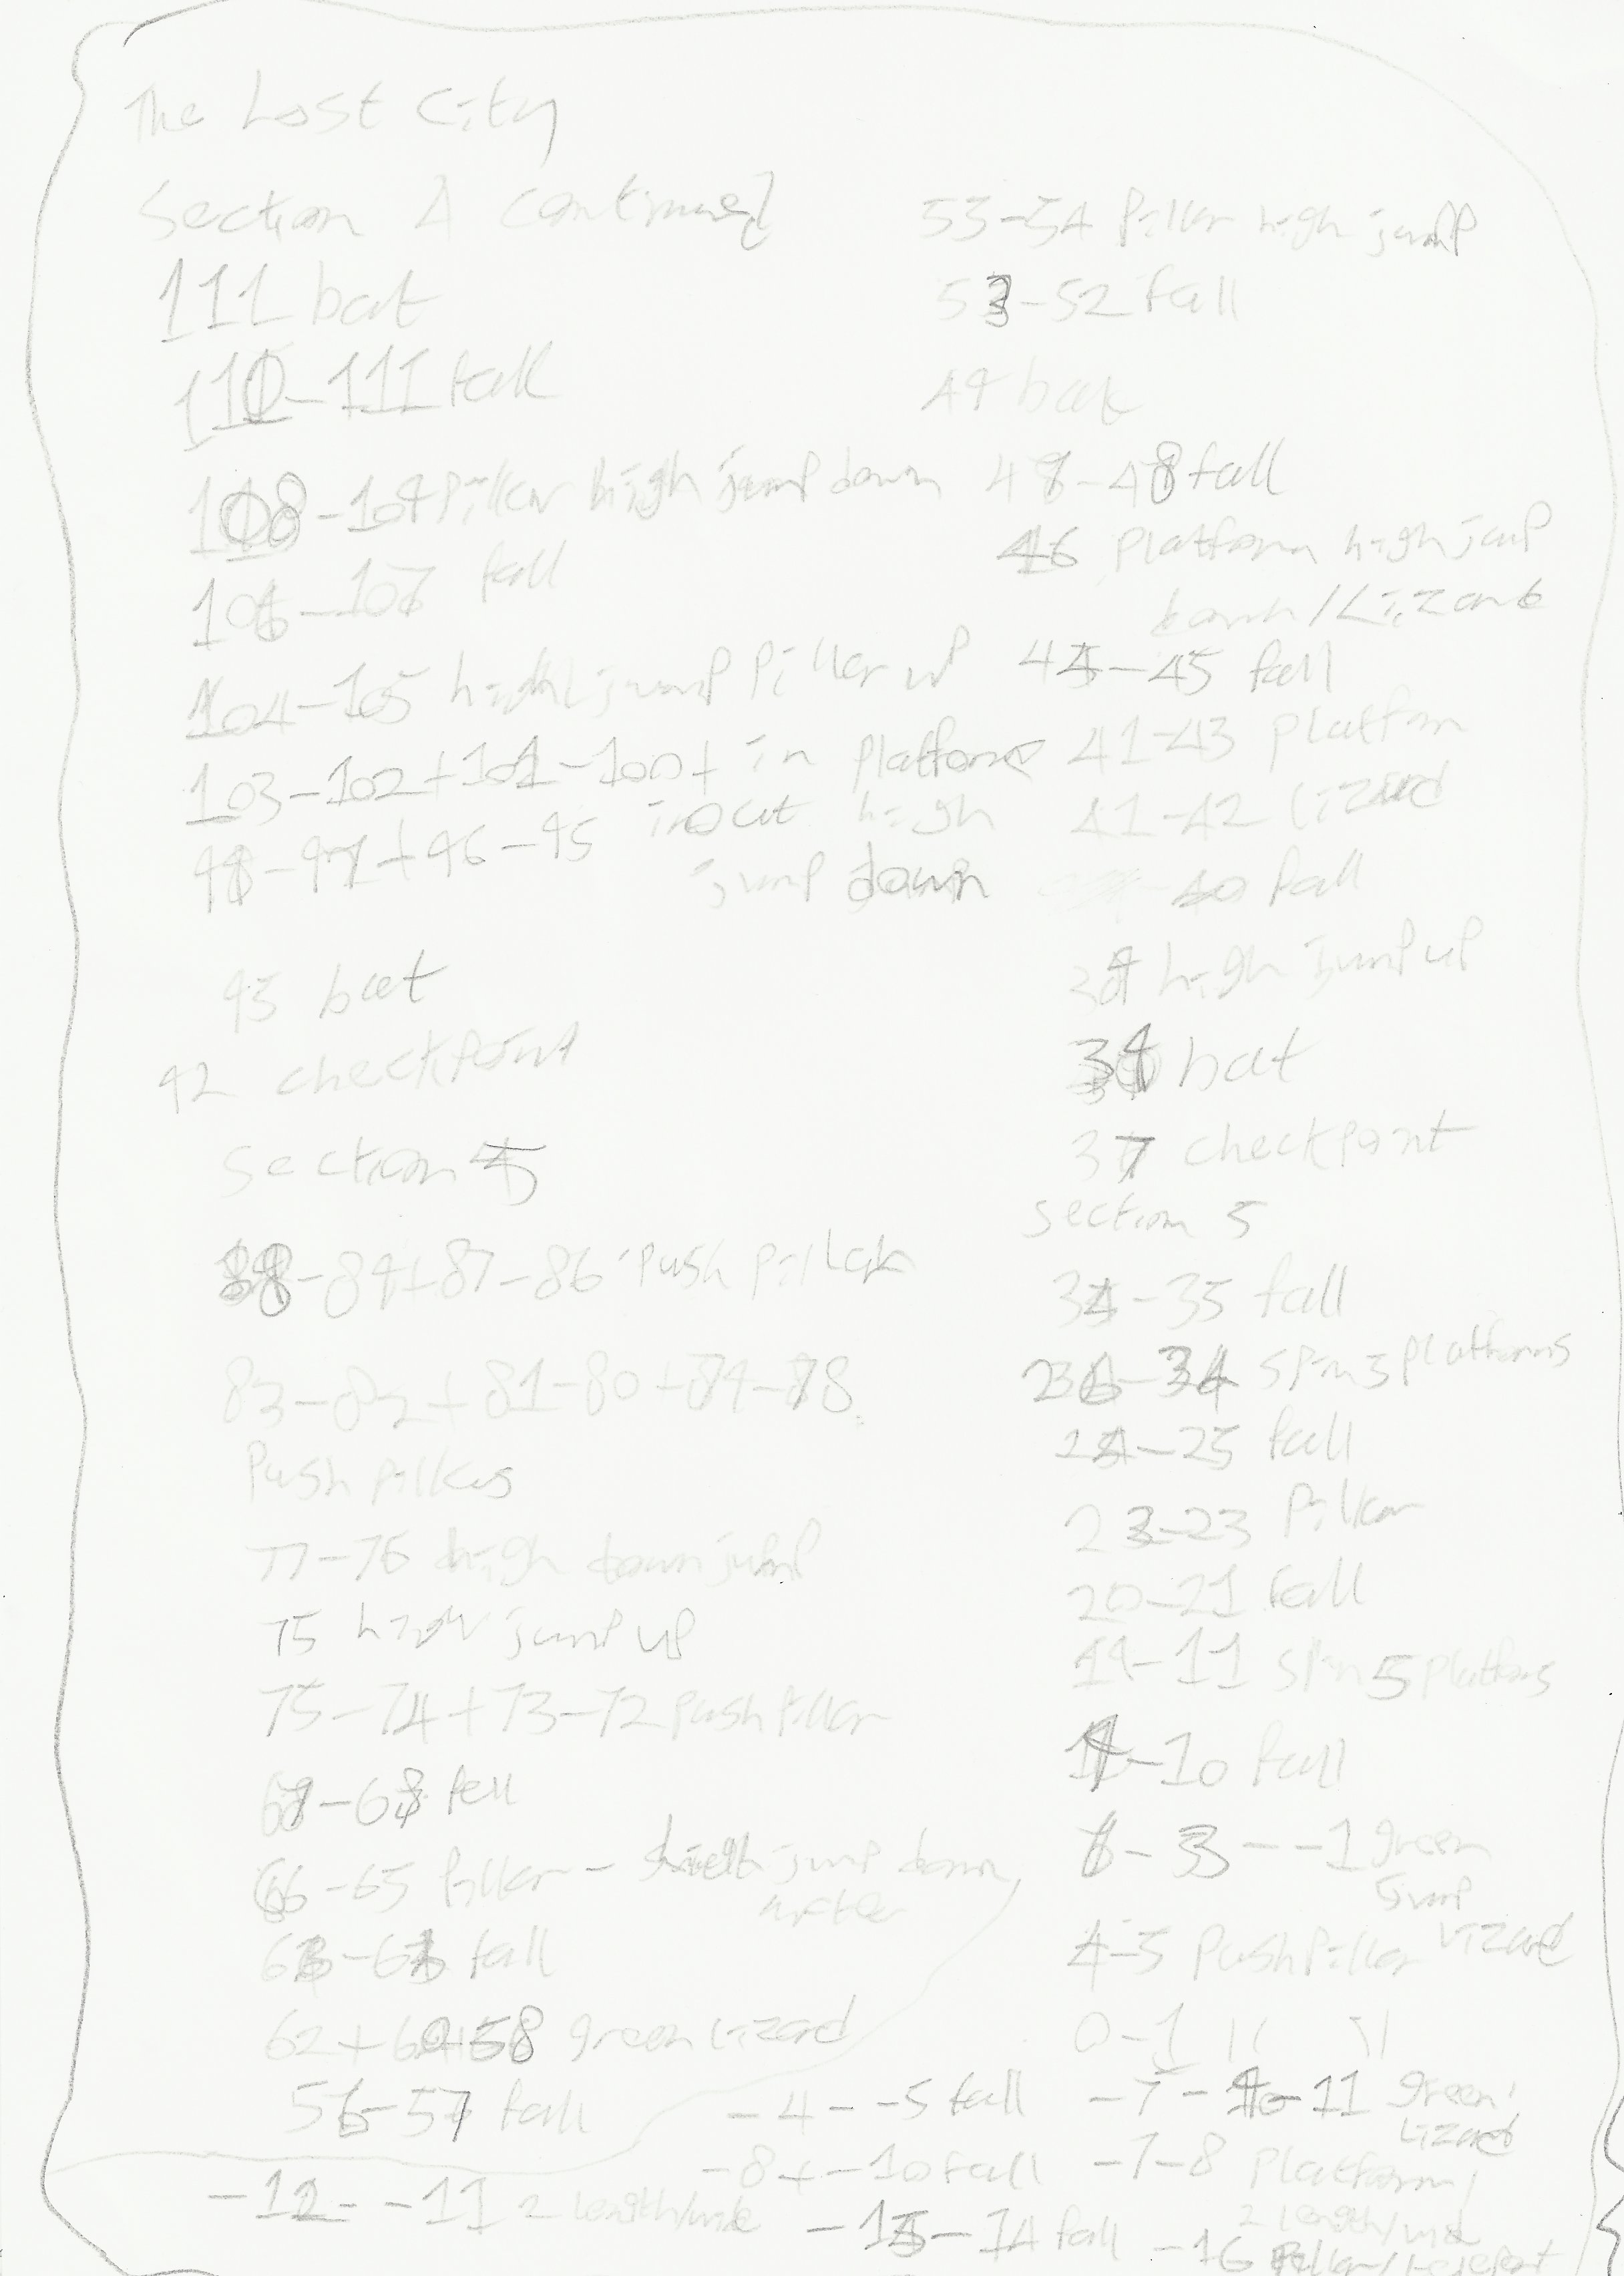 The Lost City
Section 4 continued
111 bat
110-111 fall
108-109 Pillar high jump down
106-107 fall
104-105 high jump Pillar up
103-102+101-100+ in platforms
98-97+96-95 in out high
jump down
93 bat
92 checkpoint
Section 5
88-89+87-86 push pillar
83-82+81-80+79-78
Push pillars
77-76 high down jump
75 high jump up
75-74+73-72 push pillar
fall
66-65 Pillar - high jump down
after
fall
62+60+58 green lizard
56-57 fall
53-54 Pillar high jump
53-52 fall
49 bat
48 fall
46 Platform high jump
down/Lizard
44-45 fall
41-43 platform
41-42 lizard
40 fall
39 high jump up
39 bat
37 checkpoint
Section 5
34-35 fall
26-34 spin 3 platforms
24-25 fall
23 Pillar
20-21 fall
19-11 spin 5 platforms
10 fall
3 - -1 green
jump
lizard
4-5 Push Pillar
0-1 \\ \\
-4 - -5 fall
-7 - 10-11 green
lizard
-8+-10 fall
-7-8 Platform/
2 length/wide
-12 - -11 2 length/wide
-15-14 fall
-16 Pillar/teleport